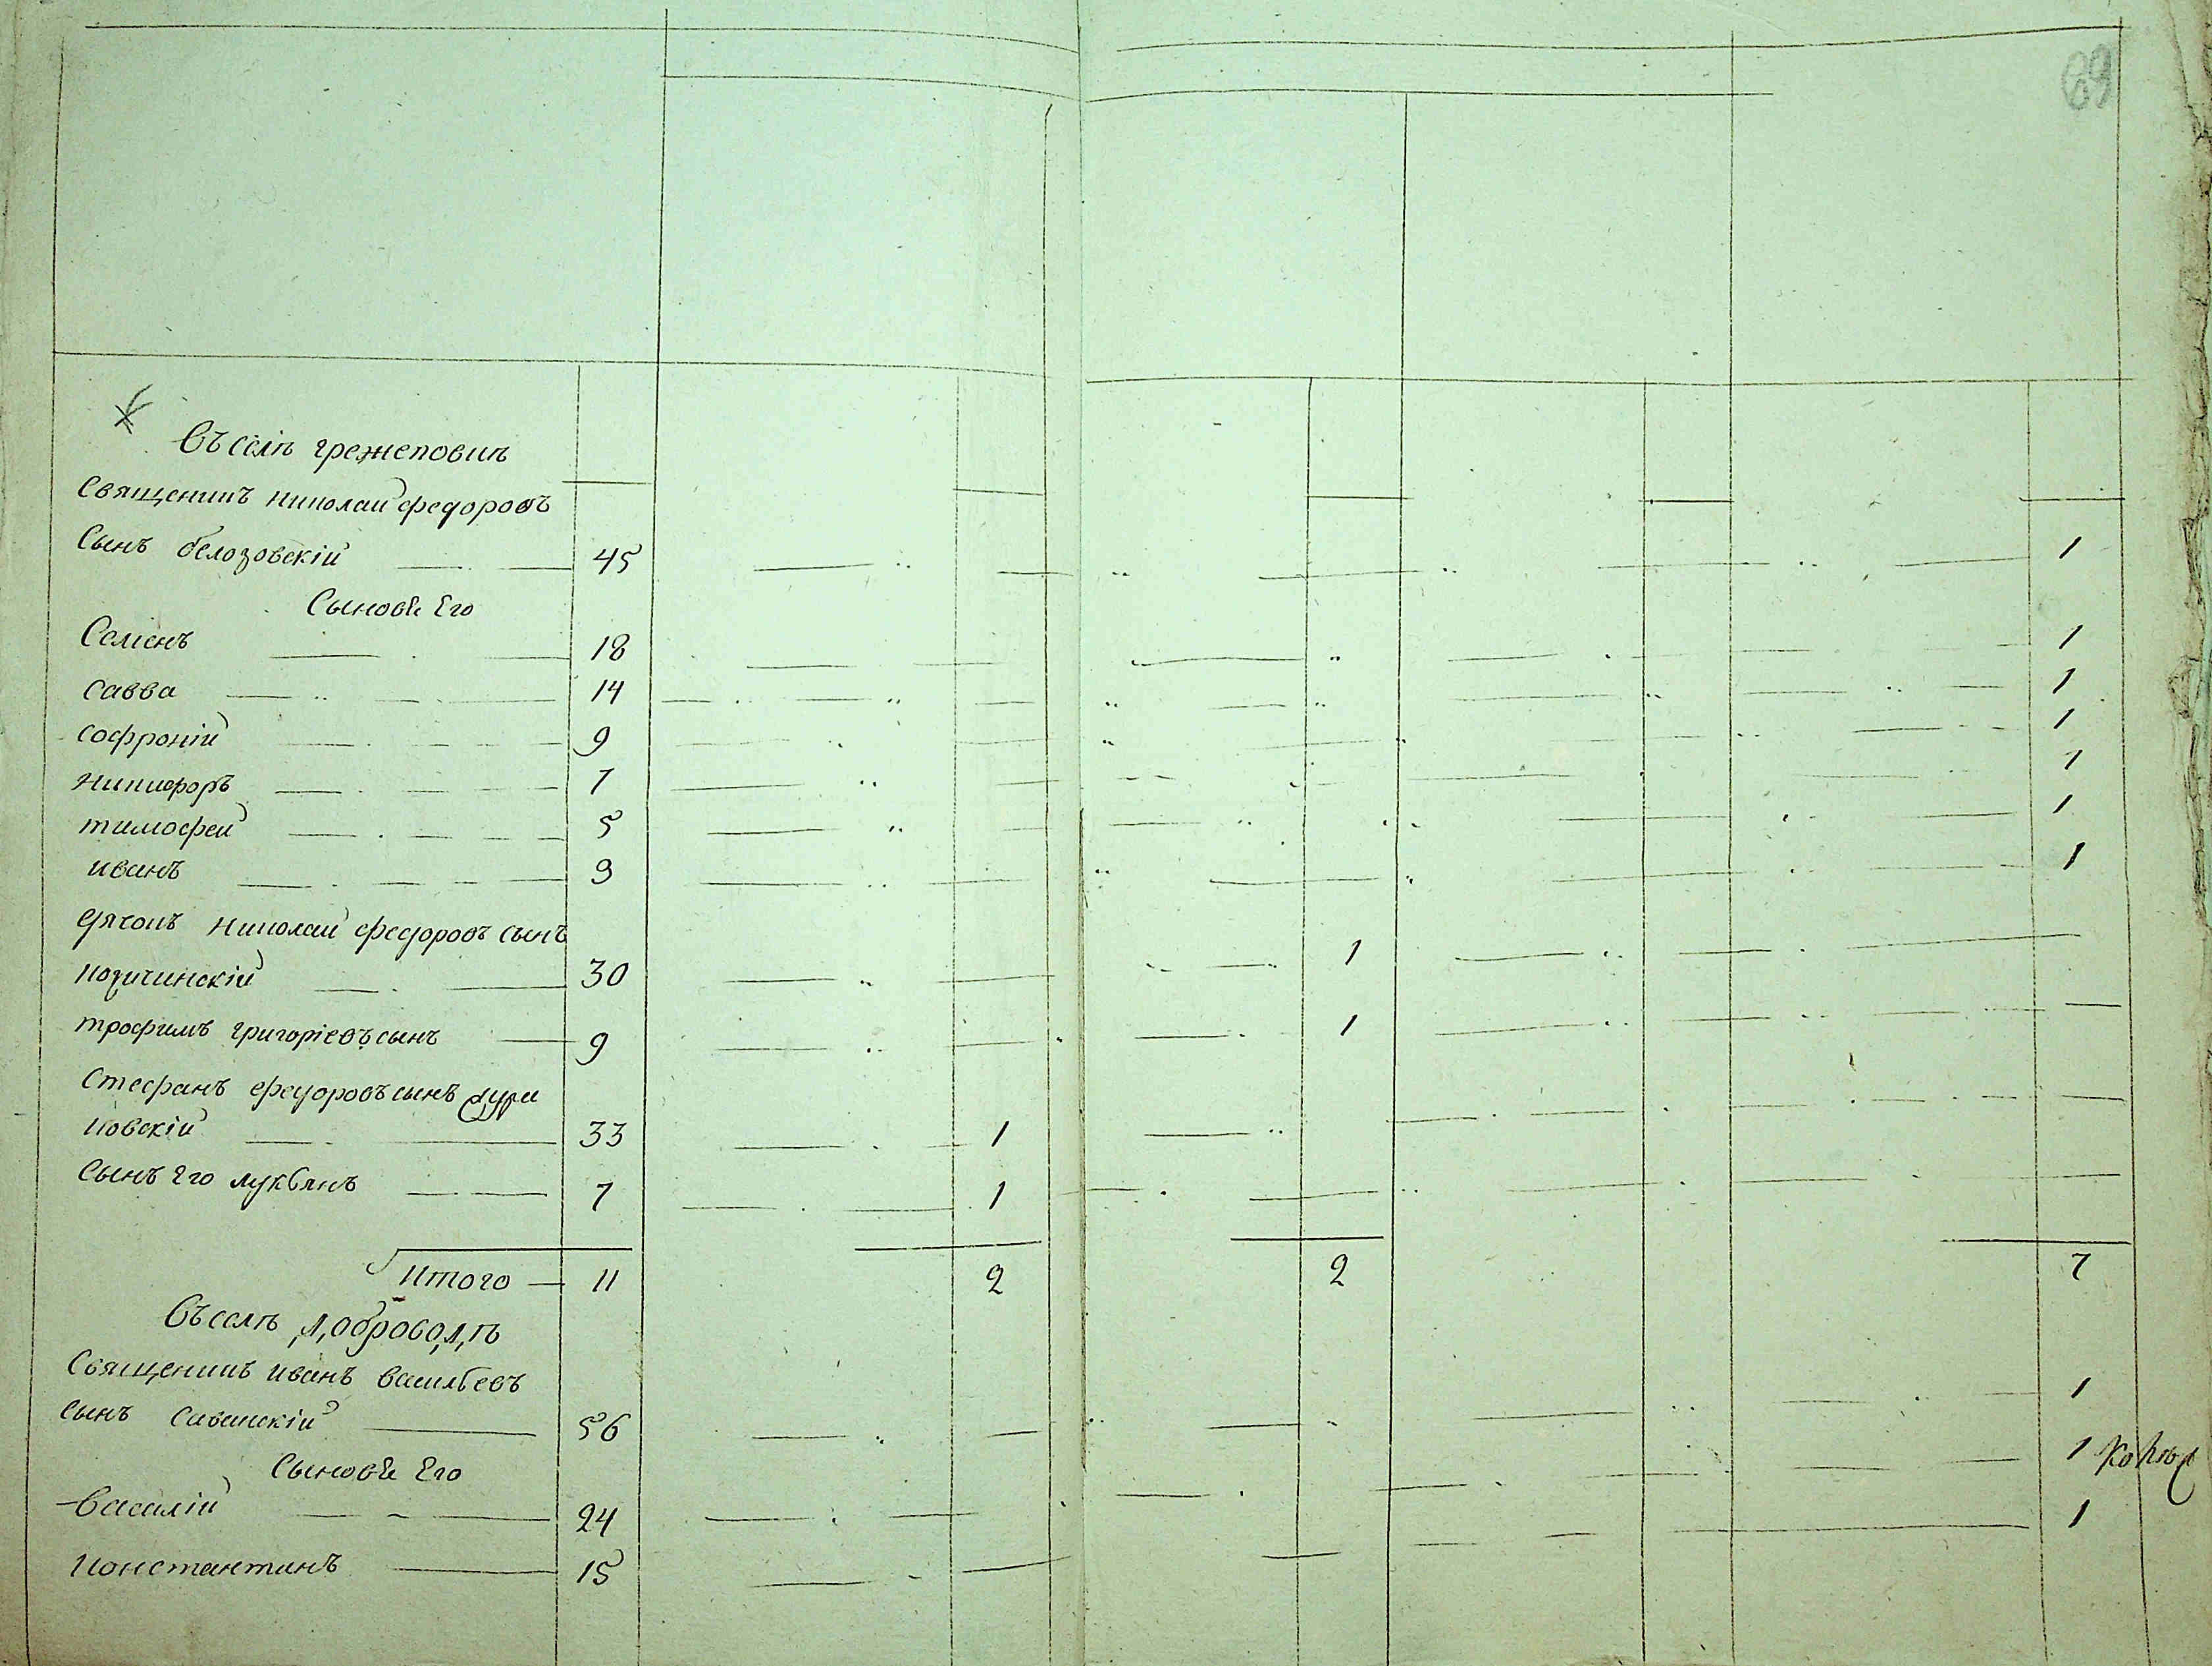 69
Въ селѣ грежеповкѣ
Священикъ николай федоровъ
Сынъ белозовскій 45 1
Сыновьѧ Его
Семенъ 18 1
савва 14 1
софроній 9 1
никифоръ 7 1
тимофей 5 1
иванъ 3 1
дячокъ николай федоровъ сынъ
30 1
трофимъ григоріевъ сынъ 9 1
Стефанъ федоровъ сынъ
ковскій 33 1
Сынъ Его лукьянъ 7 1
Итого 11 2 2 7
Въ селѣ доброводѣ
Священикъ иванъ васильевъ
сынъ Савицкій 56 1
Сыновьѧ Его
Василій 24 1
константинъ 15 1